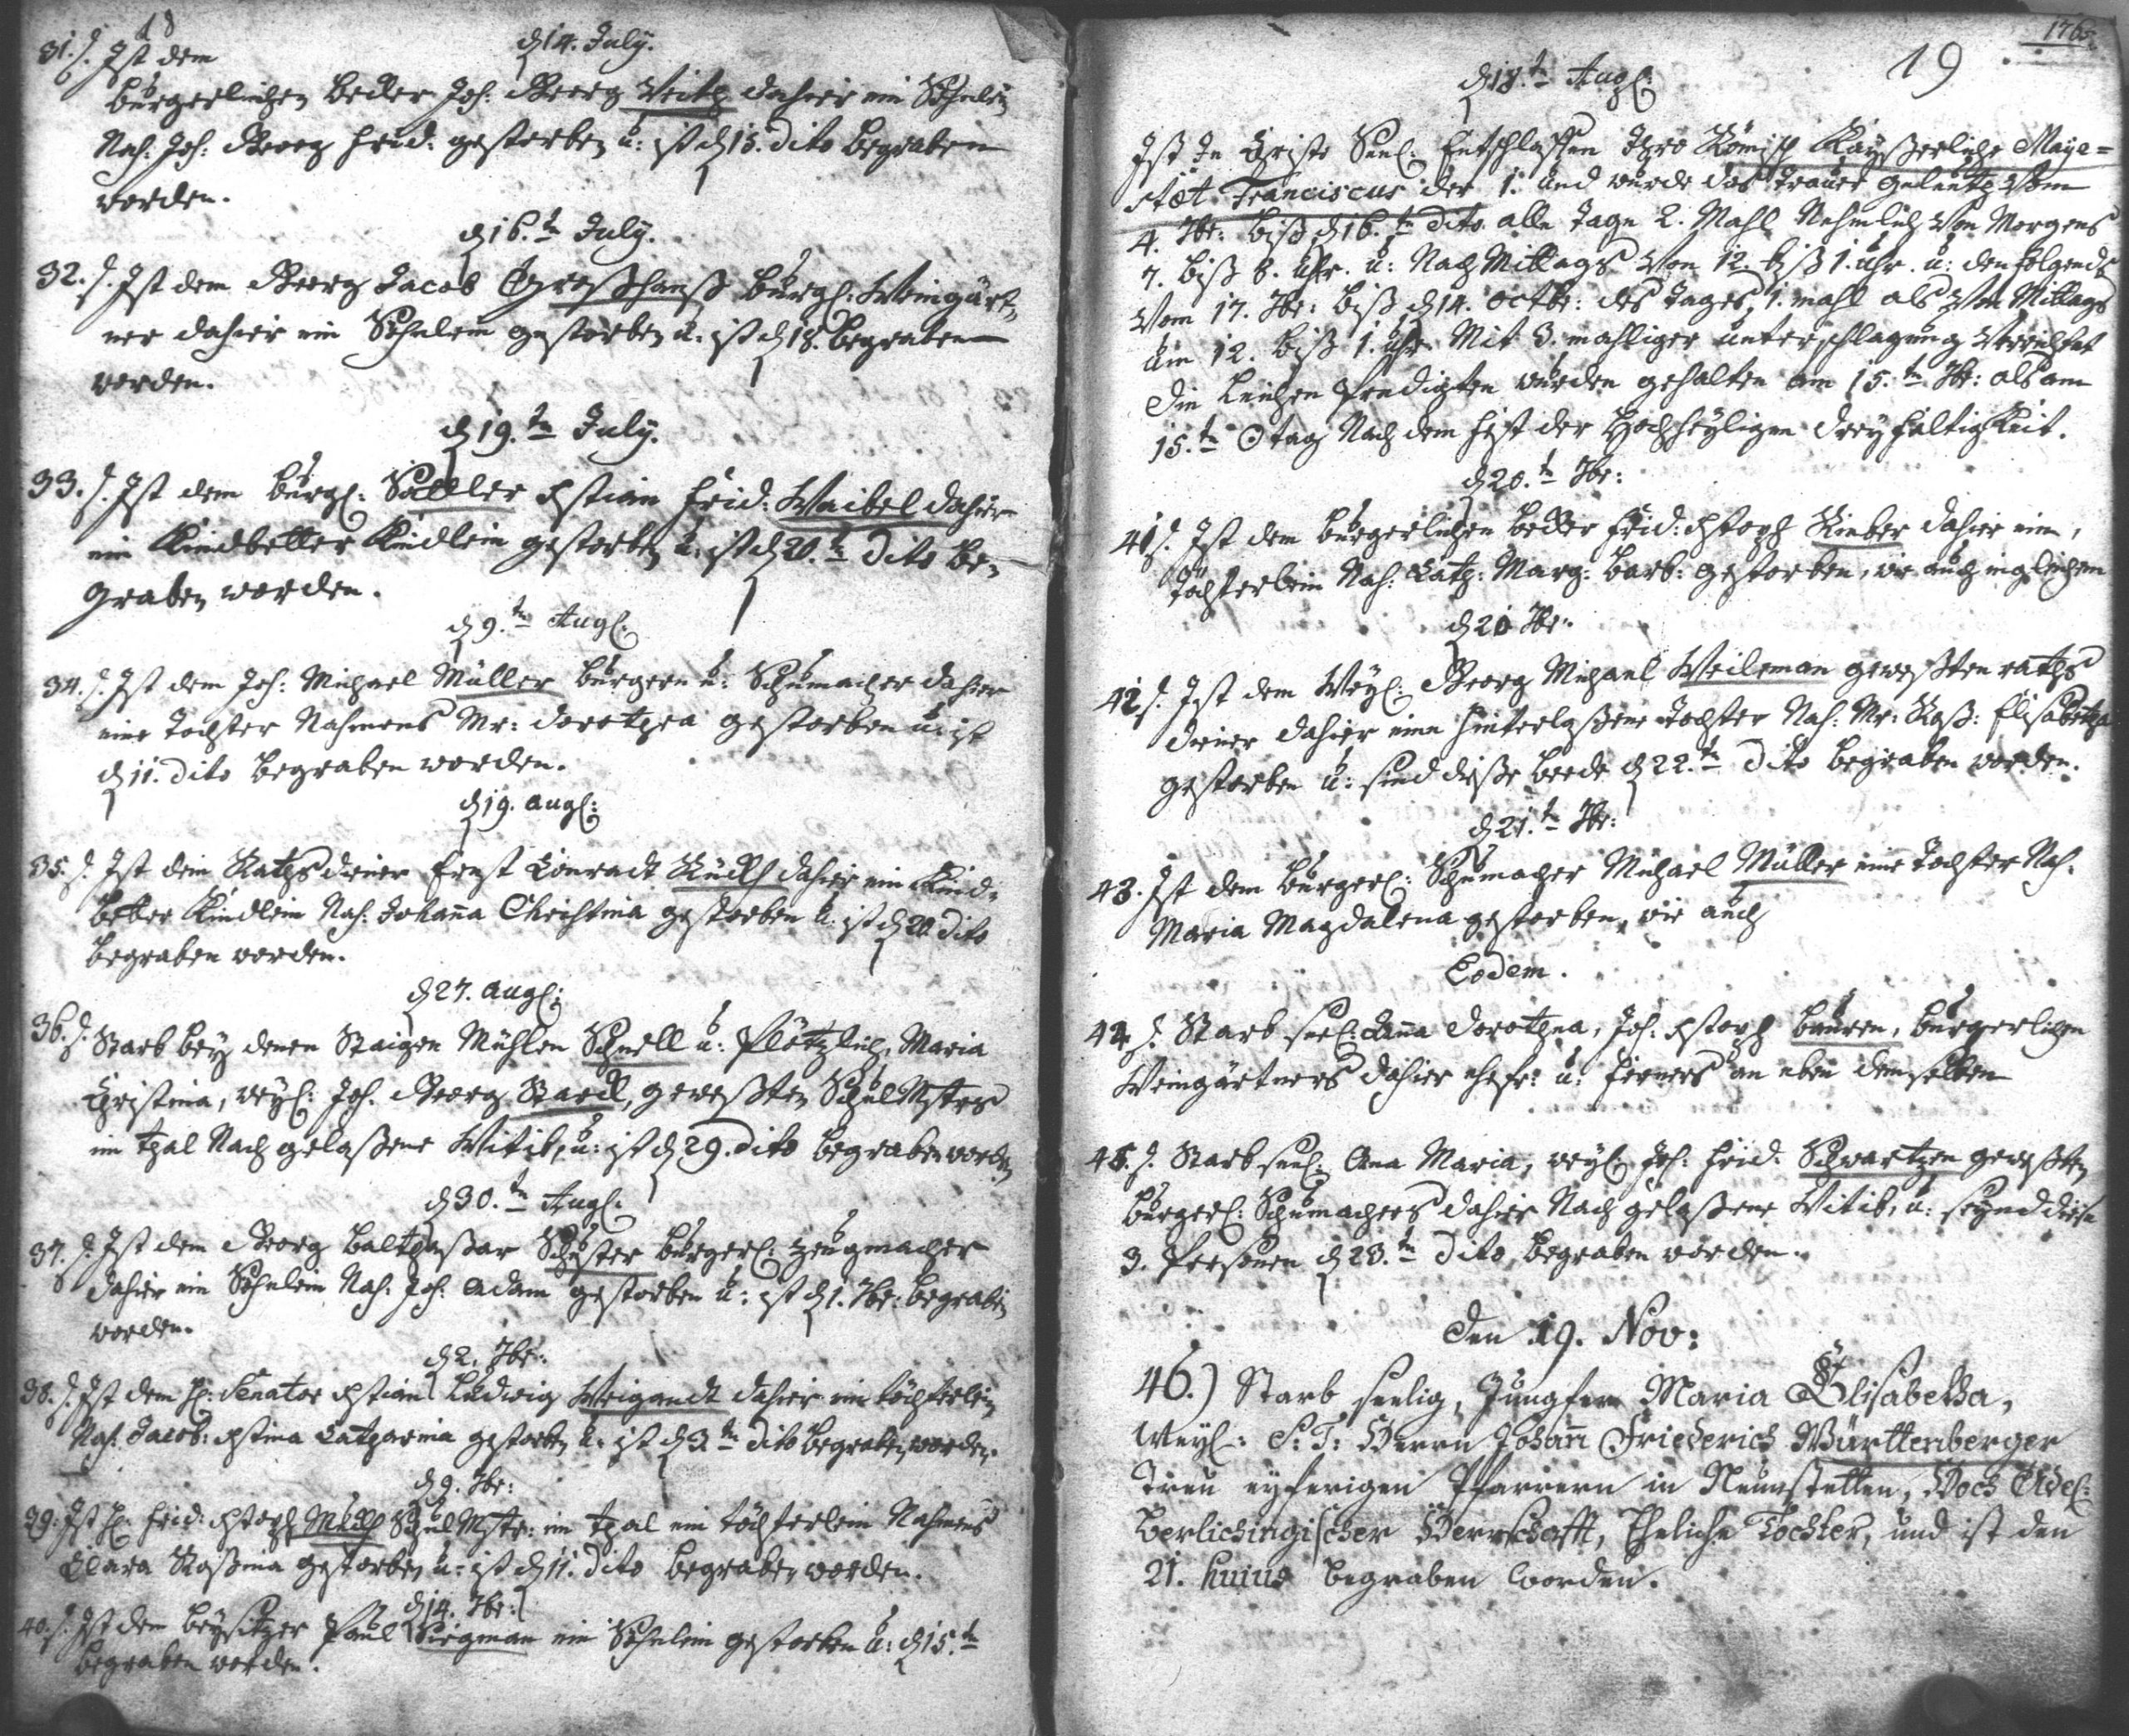 18
d 14. July.
31. J. Ist dem
Burgerlichen Becker Joh: Georg Veith dahier ein Söhnlein
Nah: Joh: Georg Frid: gestorben u: ist d 15. dito begraben
worden.
d 16.tn July.
32. J. Ist dem Georg Jacob Großhanß burgl: Weingärt,
ner dahier ein Söhnlein gestorben u: ist d 18. begraben
worden.
d 19.tn July.
33. J. Ist dem burgl: Sattler Xstian Frid: Waibel dahier
ein Kindbetter Kindlein gestorben u: ist d 20.tn dito be,
graben worden.
d 9.tn Augl:
34. J. Ist dem Joh: Michael Müller burgern u: Schumacher dahier
eine Tochter Nahmens Mr: Dorothea gestorben u: ist
d 11. dito begraben worden.
d 19. augl:
35. J. Ist dem Rathsdiener Ernst Conradt dahier ein Kind,
better Kindlein Nah: Johanna Christina gestorben u: ist d 20. dito
begraben worden.
d 27. augl:
36. J. Starb bey denen Staigen Mühlen Schnell u: Plötzlich, Maria
Christina, weyl: Joh. Georg gewesten Schul Mstrs
im thal Nach gelaßene Witib, u: ist d 29. dito begraben worden
d 30.tn Augl:
37. J. Ist dem Georg Balthasar Schuster burgerl: zeugmacher
dahier ein Söhnlein Nah: Joh: Adam gestorben u: ist d 1. 7br: begraben
worden.
d 2. 7br:
38. J. Ist dem H: Senator Xstian Ludwig Weigandt dahier ein töchterlein
Nah: Jacob: Xstina Catharina gestorben u: ist d 3.tn dito begraben worden.
d 9. 7br:
39. Ist H: Frid: Xstoph Schul Mstr: im thal ein töchterlein Nahmens
Clara Rosina gestorben u: ist d 11. dito begraben worden.
d 14. 7br:
40. J. Ist dem beysitzer Paul Siegman ein Söhnlein gestorben u: d 15.tn
begraben worden.
1765.
19
d 18.tn Augl:
Ist In Christo Seel: Entschlaffen Ihro Römisch Kayßerliche Maye=
stæt Franciscus der 1. und wurde das trauer geleuth vom
4. 7br: biß d 16.tn dito. alle tage 2. Mahl Nehmlich von Morgens
7. biß 8. Uhr. u: Nach Mittags von 12. biß 1. uhr. u: denfolgends
vom 17. 7br: biß d 14. octbr: des tages 1. mahl als von Mittags
um 12. biß 1. uhr Mit 3. mahliger unterschlagung verrichtet
die Leichen Predigten wurden gehalten am 15.tn 7br: als am
15.tn tag Nach dem Fest der Hochheyligen Dreyfaltigkeit.
d 20.tn 7br:
41 J. Ist dem burgerlichen becker Frid: Xstoph Kieber dahier ein,
töchterlein Nah: Cath: Marg: Barb: gestorben, wie auch ingleichem
d 20 7br:
42 J. Ist dem Weyl: Georg Michael Weileman geweßten raths
diener dahier eine hinterlaßene tochter Nah: Mr: Roß: Elisabetha
gestorben u: sind dieße beede d 22.tn dito begraben worden.
d 21.tn 7br:
43. Ist dem burgerl: Schumacher Michael Müller eine Tochter Nah.
Maria Magdalena gestorben, wie auch
Eodem.
44 J. Starb seel: Anna Dorothea, Joh: Xstoph Bauren, burgerlichen
Weingärtners dahier ehefr: u: ferners an eben demselben
45. J. Starb seel: Ana Maria, weyl Joh: Frid: Schwartzen geweßten
burgerl: Schumachers dahier Nach gelaßene Witib, u: seynd diese
3. Personen d 23.tn dito begraben worden.
Den 19. Nov:
46.) Starb seelig, Jungfer Maria Elisabetha,
Weyl: S: T: Herrn Johañ Friederich Württenberger
Treu eyferigen Pfarrern in Neunstetten, Hoch Adel:
Berlichingischer Herrschafft, Eheliche Tochter, und ist den
21. huius begraben worden.